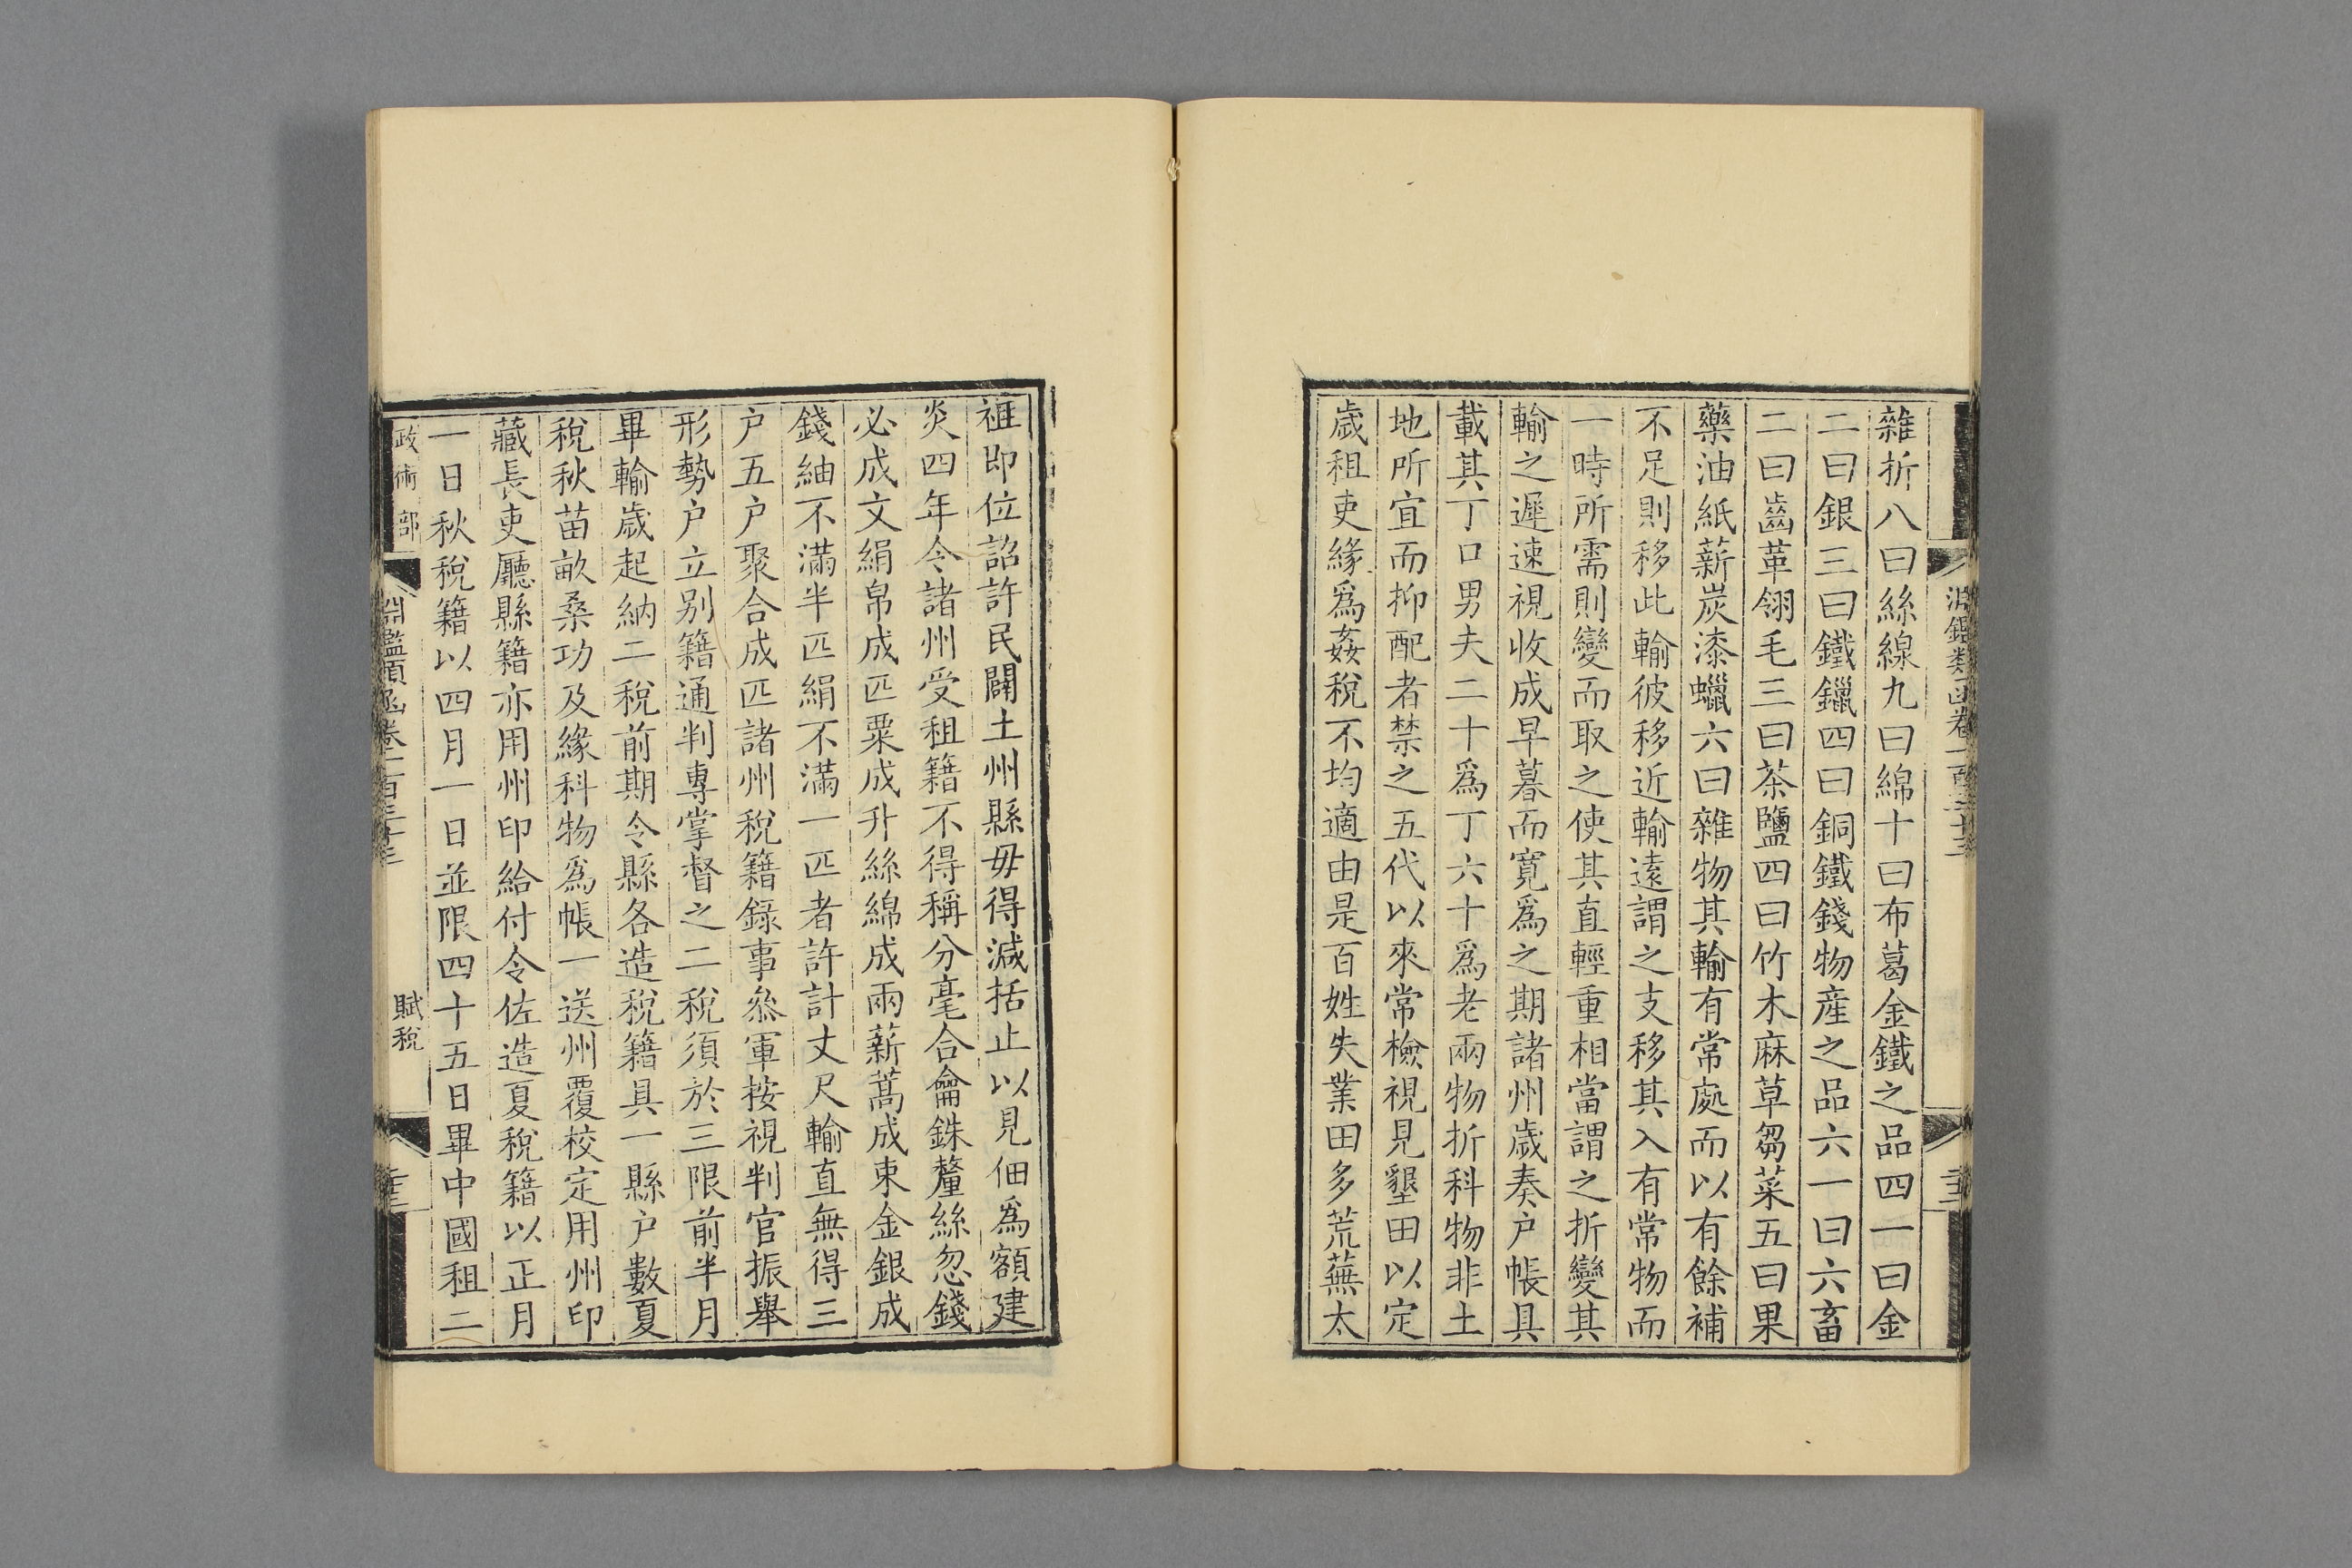 雜折八曰絲線九曰綿十曰布葛金鐵之品四一曰金
二曰銀三曰鐵鑞四曰銅鐵錢物産之品六一曰六畜
二曰齒革翎毛三曰茶鹽四曰竹木麻草芻菜五曰果
藥油紙薪炭漆蠟六曰雜物其輸有常處而以有餘補
不足則移此輸彼移近輸遠謂之支移其入有常物而
一時所需則變而取之使其直輕重相當謂之折變其
輸之遲速視收成早暮而寬爲之期諸州歲奏户帳具
載其丁口男夫二十爲丁六十爲老兩物折科物非土
地所宜而抑配者禁之五代以來常檢視見墾田以定
歲租吏緣爲姦稅不均適由是百姓失業田多荒蕪太
祖卽位詔許民闢土州縣毋得減括止以見佃爲額建
炎四年令諸州受租籍不得稱分毫合龠銖釐絲忽錢
必成文絹帛成匹粟成升絲綿成兩薪蒿成束金銀成
錢紬不滿半匹絹不滿一匹者許計丈尺輸直無得三
户五户聚合成匹諸州稅籍錄事叅軍按視判官振舉
形勢户立别籍通判專掌督之二稅須於三限前半月
畢輸歲起納二稅前期令縣各造稅籍具一縣户數夏
稅秋苗畝桑功及緣科物爲帳一送州覆校定用州印
藏長吏廳縣籍亦用州印給付令佐造夏稅籍以正月
一日秋稅籍以四月一日並限四十五日畢中國租二
政術部
淵鑑類函卷一百三十三
賦稅